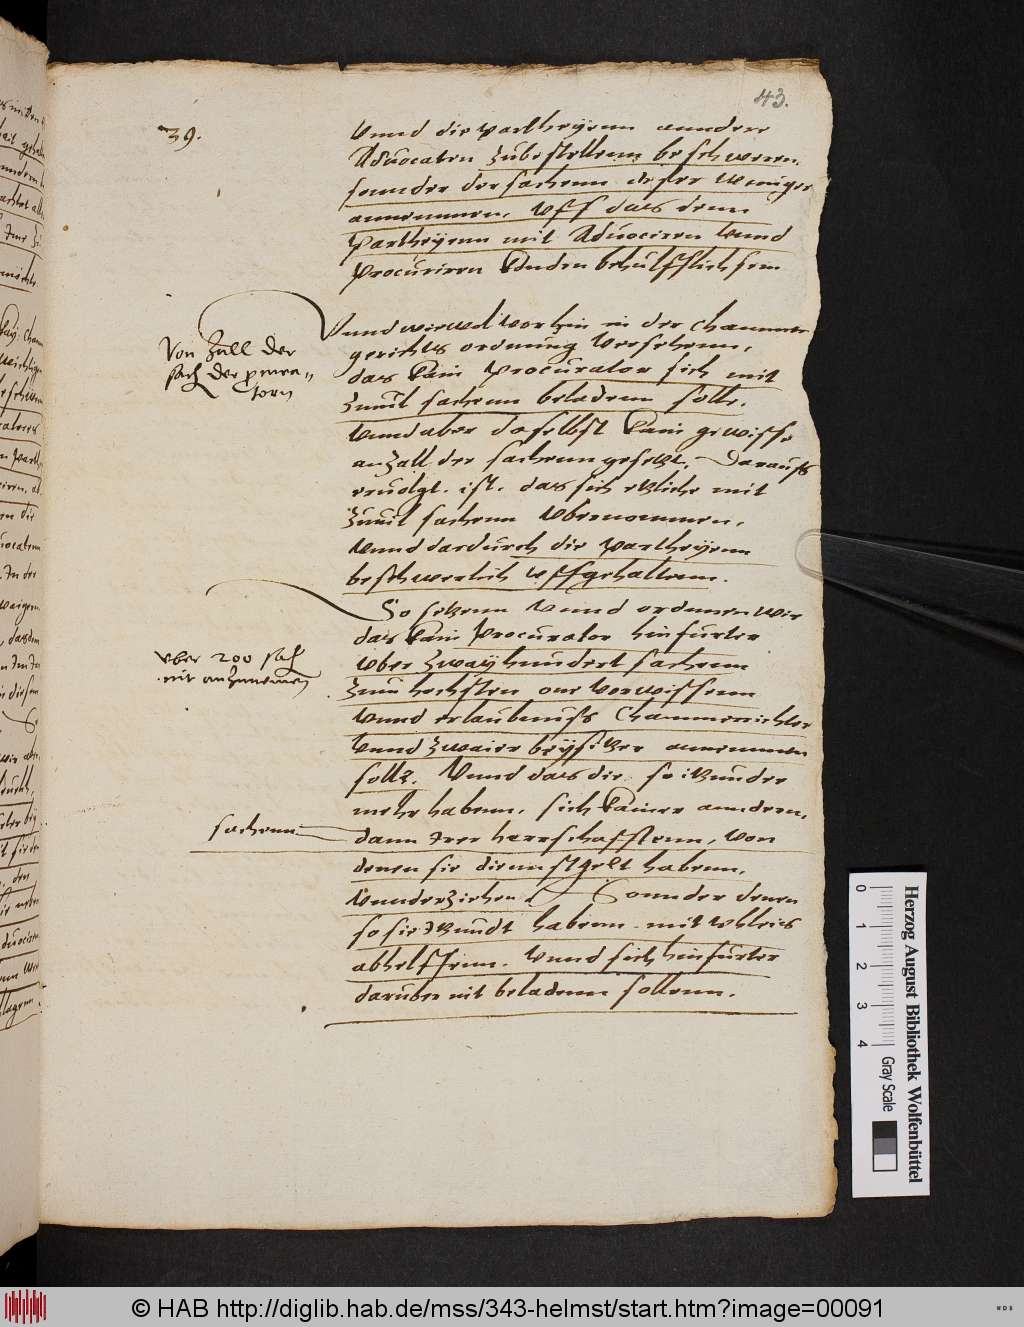 43.
39.
vnnd die partheyenn anndere
Aduocaten zubestellenn beschweren,
sonnder der sachenn dester weniger
annemmen, vff das denn
Partheyenn mit Aduociren vnnd
Procuriren konden behulfflich sein
Vnnd wiewol vorhin in der Chammer
gerichts ordnung versehenn,
das kain Procurator sich mit
zuuil sachenn beladenn solle,
vnnd aber daselbst kain gewisse
anzall der sachenn gesetzt, Darauss
eruolgt ist, das sich etzliche mit
zuuil sachenn vbernommen,
vnnd dardurch die partheyenn
beschwerlich vffgehaltenn.
Von Zall der
sach der procura-
torn
So setzenn vnnd ordnnen wir
das kain Procurator hinfurter
vber zwayhundert sachenn
zum hochsten one vorwissenn
vnnd erlaubnuss Chammerrichter
vnnd zwaier beysitzer annemmen
soll. Vnnd das die so itzunder
mehr habenn, sich kainer anndern,
dann irer herrschafftenn, von
denen sie dienstgelt habenn,
vnnderziehen Sonnder denen
so sie itzundt habenn mit vhleis
abhelffenn. Vnnd sich hinfurter
daruber nit beladenn sollenn.
vber 200 sach
nit anzunemen
sachenn
Herzog August Bibliothek Wolfenbüttel
0 1 2 3 4
Gray Scale
© HAB http://diglib.hab.de/mss/343-helmst/start.htm?image=00091
WDB